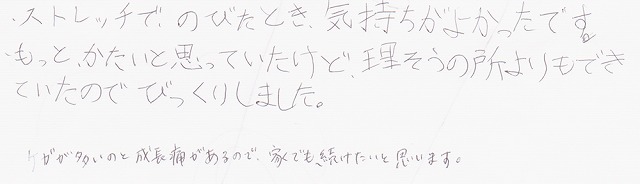 ・ストレッチで、のびたとき、気持ちがよかったです。
・もっと、かたいと思っていたけど、理そうの所よりもでき
ていたのでびっくりしました。
ケガが多いのと成長痛があるので、家でも続けたいと思います。